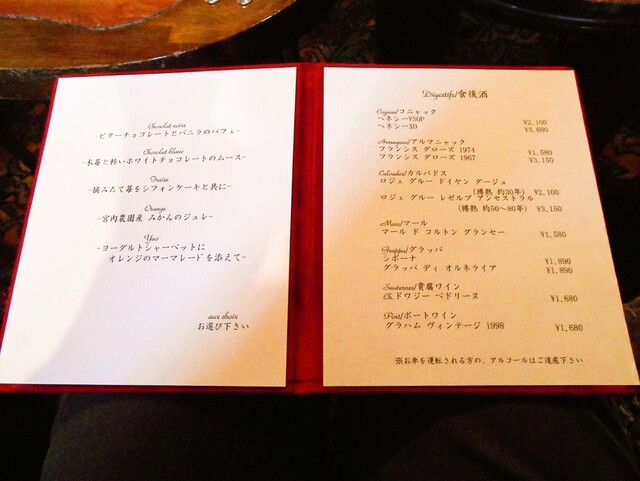 Chocolat noire
-ビターチョコレートとバニラのパフェ-
Chocolat blanc
-木苺と軽いホワイトチョコレートのムース-
Fraise
-摘みたて苺をシフォンケーキと共に-
Orange
-宮内農園産 みかんのジュレ-
-ヨーグルトシャーベットに
オレンジのマーマレードを添えて-
aux choix
お選び下さい
Digestifs/食後酒
Cognac/コニャック
ヘネシーVSOP ¥2,100
ヘネシーXO ¥3,680
Armagnac/アルマニャック
フランシス ダローズ 1974 ¥1,580
フランシス ダローズ 1967 ¥3,150
Calvados/カルバドス
ロジェ グルー ドイヤン ダージュ
(樽熟 約30年) ¥2,100
ロジェ グルー レゼルブ アンセストラル
(樽熟 約50~80年) ¥3,150
Marc/マール
マール ド コルトン グランセー ¥1,580
Grappa/グラッパ
シボーナ ¥1,890
グラッパ ディ オルネライア ¥1,890
Sauternes/貴腐ワイン
Ch.ドワジー ベドリーヌ ¥1,680
Port/ポートワイン
グラハム ヴィンテージ 1998 ¥1,680
※お車を運転される方の、アルコールはご遠慮下さい